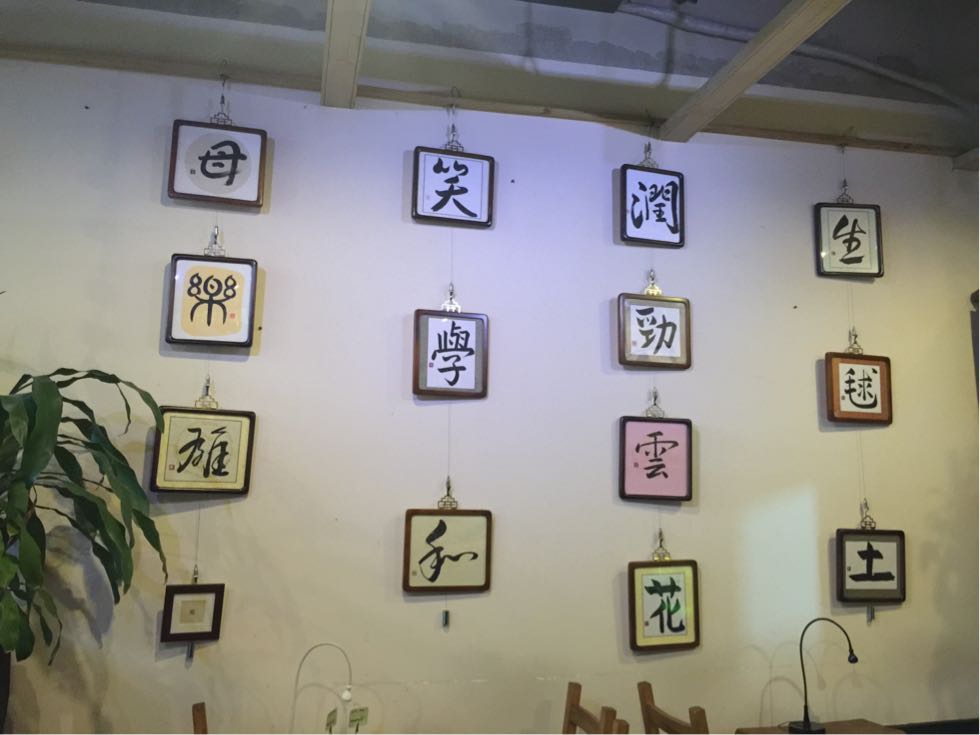 母
樂
雄
笑
學
和
潤
勁
雲
花
生
毬
土